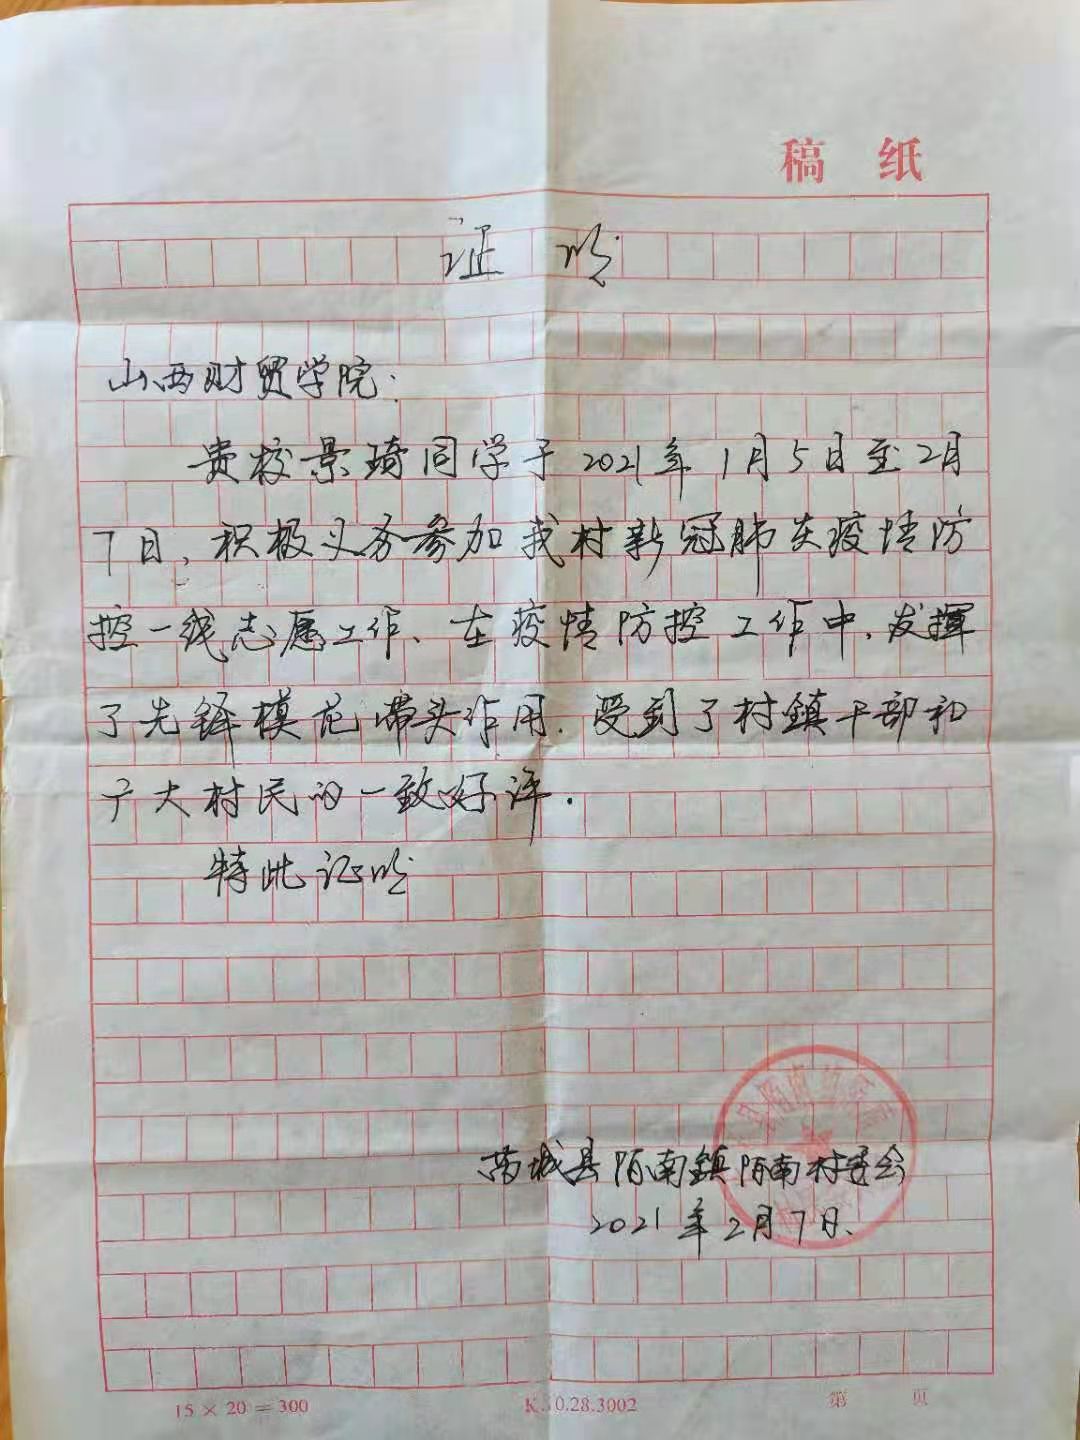 稿 纸
证 明
山西财贸学院:
贵校景琦同学于2021年1月5日至2月
7日,积极义务参加我村新冠肺炎疫情防
控一线志愿工作、在疫情防控工作中,发挥
了先锋模范带头作用.受到了村鎮干部和
广大村民的一致好评.
特此证明
芮城县陌南鎮陌南村委会
2021年2月7日.
15 × 20 = 300
K 10.28.3002
第 页